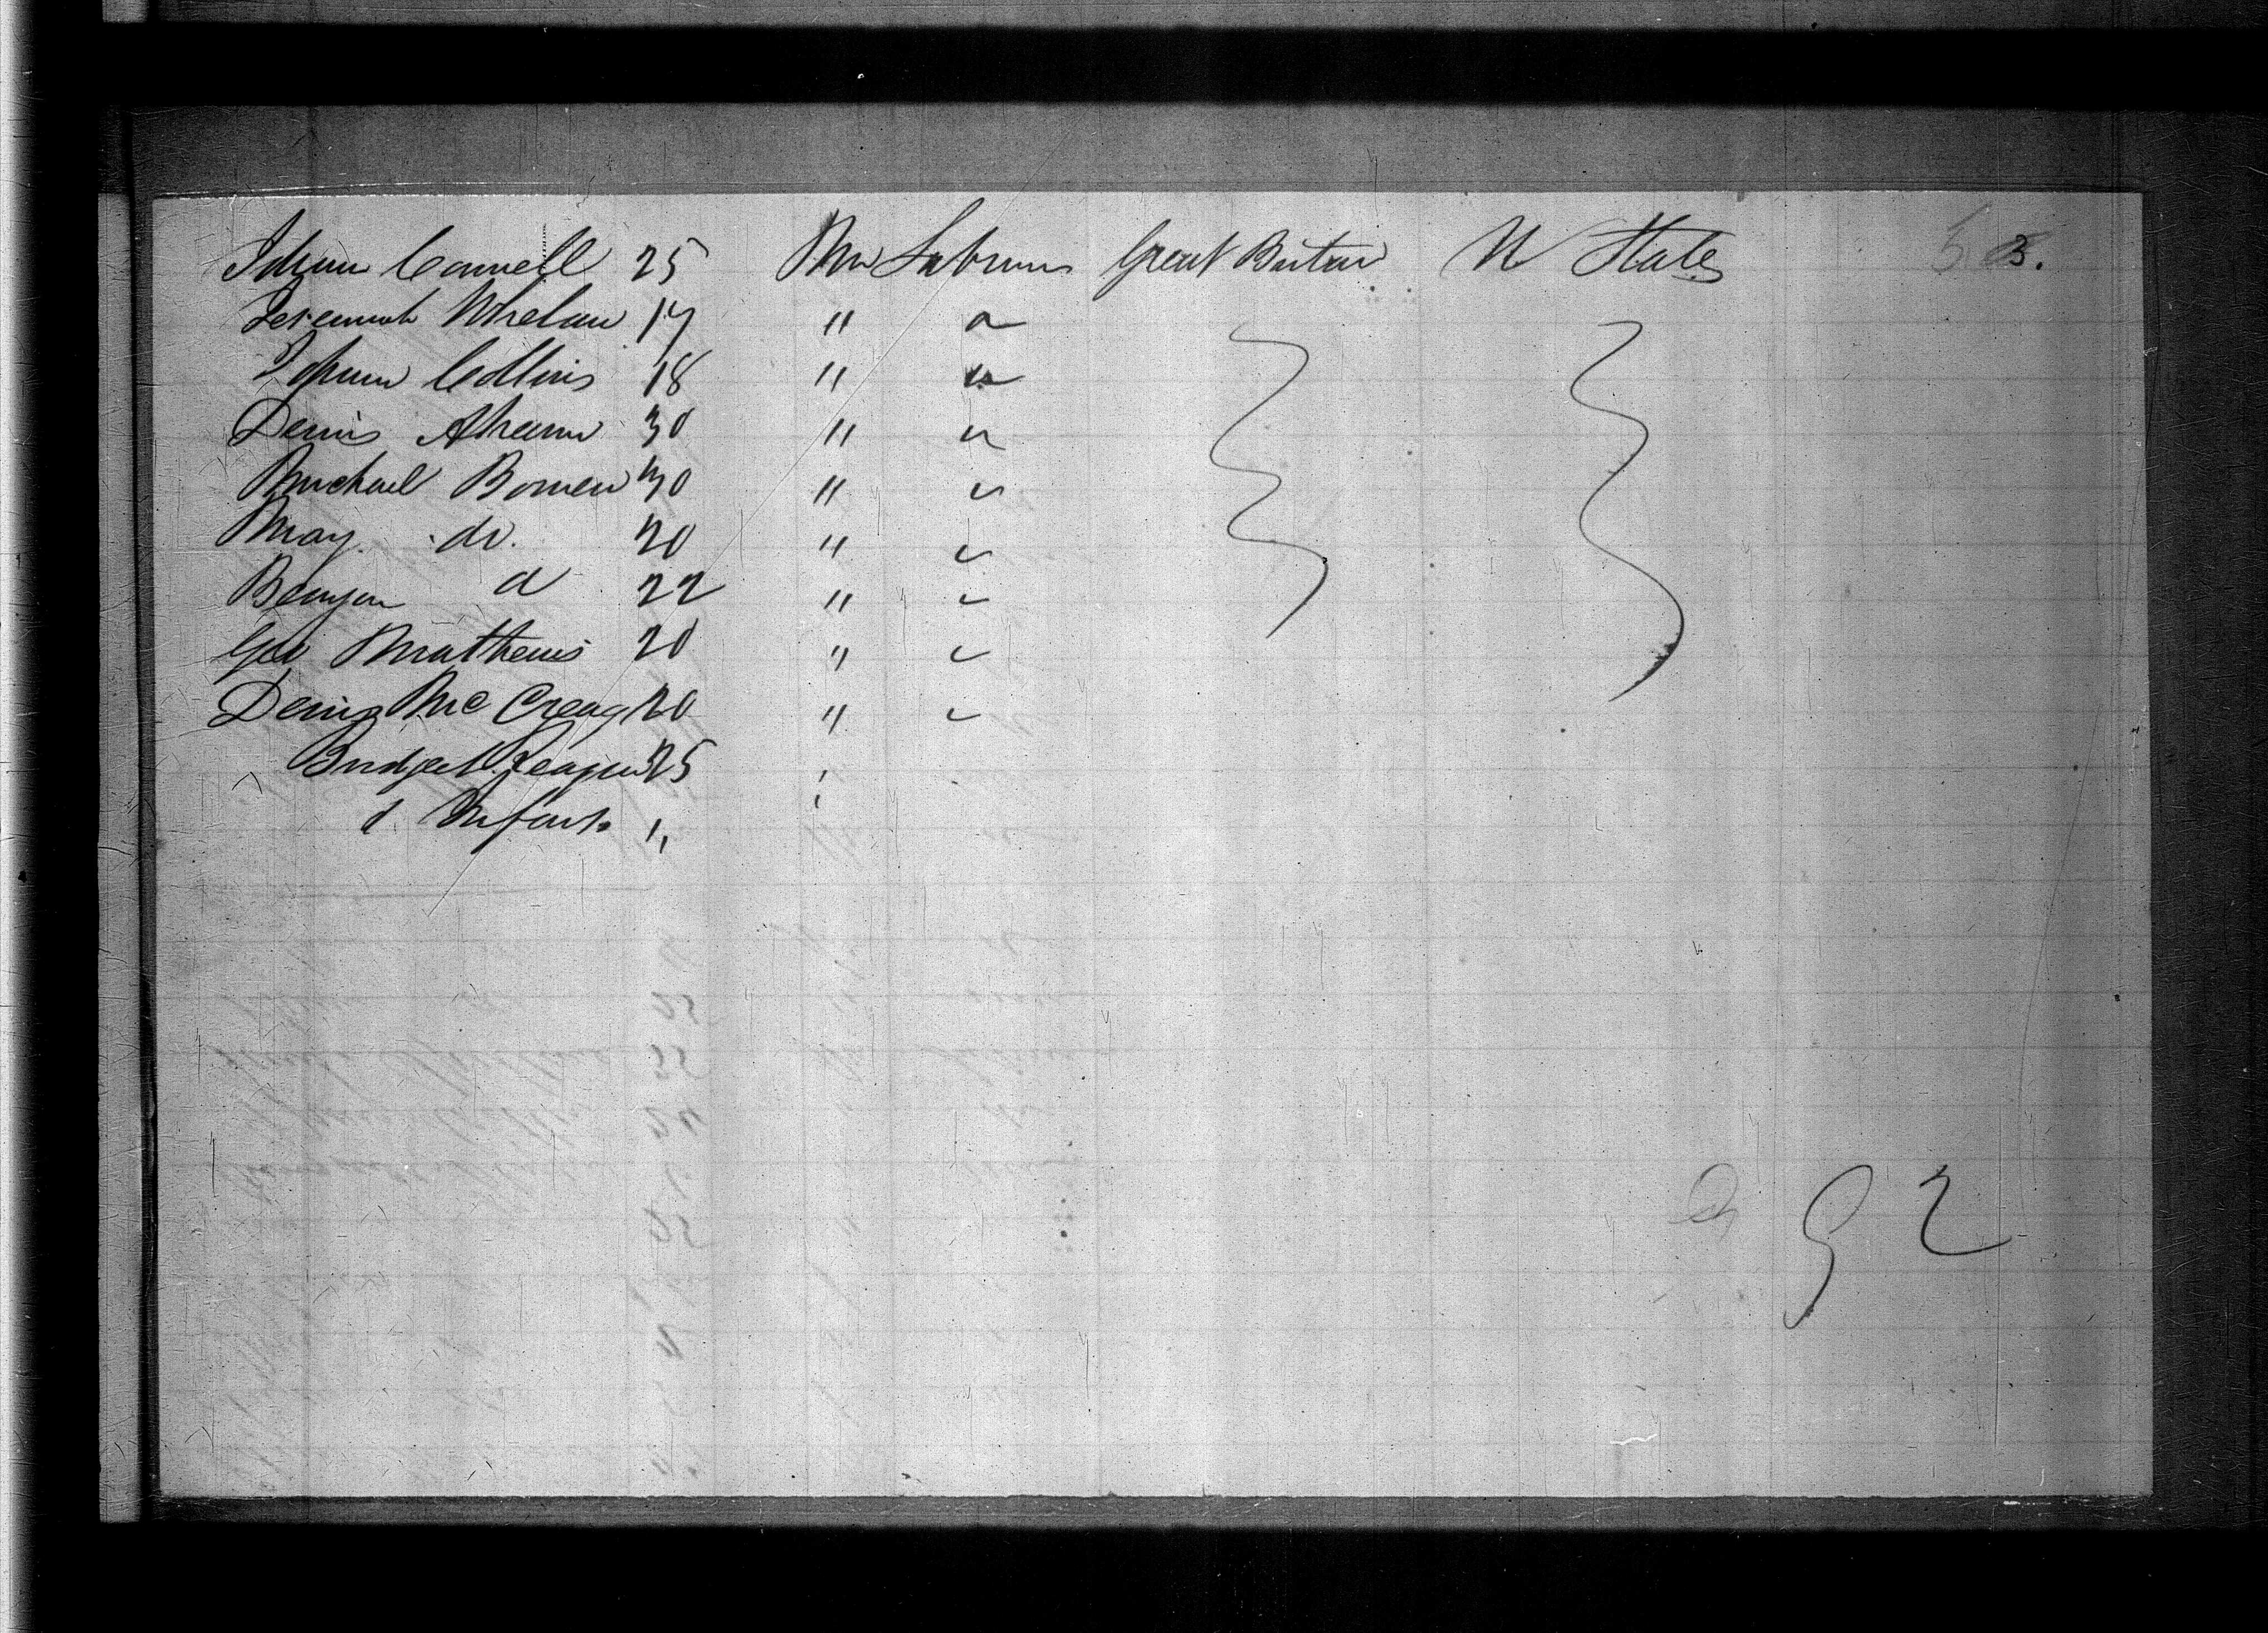 Johnn Connell 25 Mr Labrurs Great Britan U States 3.
Jeremiah Whelan 17 " "
Johnn Collins 18 " "
Denis Ahearn 30 " "
Michael Bowen 30 " "
Mary do. 20 " "
d 22 " "
Geo Mathews 20 " "
Denis Mc Creag 20 " "
Bridget 25
d Infant 1
92